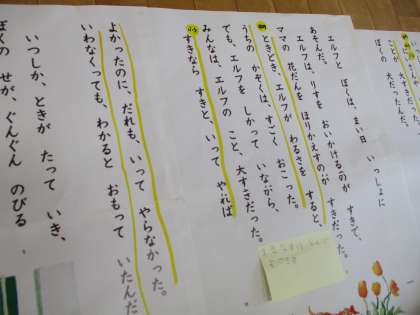 ことが 大すきだった。
ぼくの
エルフと ぼくは、まい日 いっしょに
あそんだ。
エルフは、りすを おいかけるのが すきで、
ママの 花だんを ほりかえすのが すきだった。
ときどき、エルフが わるさを すると、
うちの かぞくは、すごく おこった。
でも、エルフを しかって いながら、
みんなは、エルフの こと、大すきだった。
すきなら すきと、いって やれば
よかったのに、だれも、いって やらなかった。
いわなくっても、わかると おもって いたんだ
いつしか、ときが たって いき、
ぼくの せが、ぐんぐん のびる